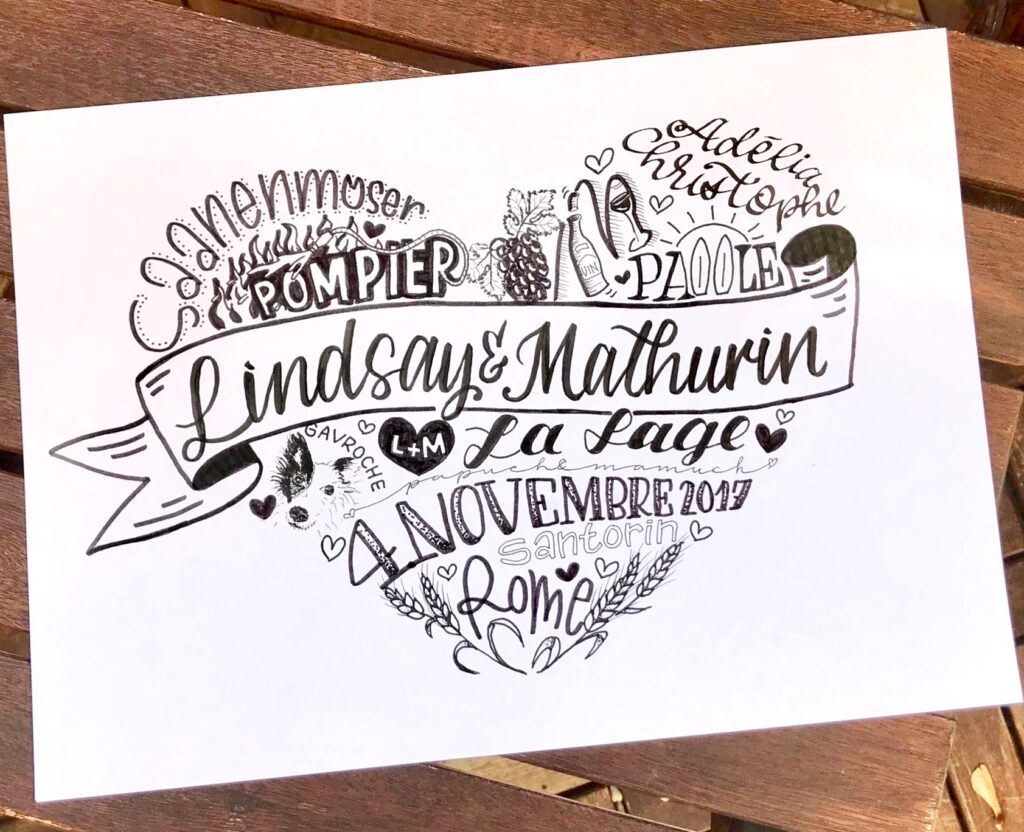 Saanenmöser
Adélia
Christophe
POMPIER
VIN
PADDLE
Lindsay & Mathurin
GAVROCHE
L+M
La Lage
papuch & mamuch
4 NOVEMBRE 2017
Santorin
Rome